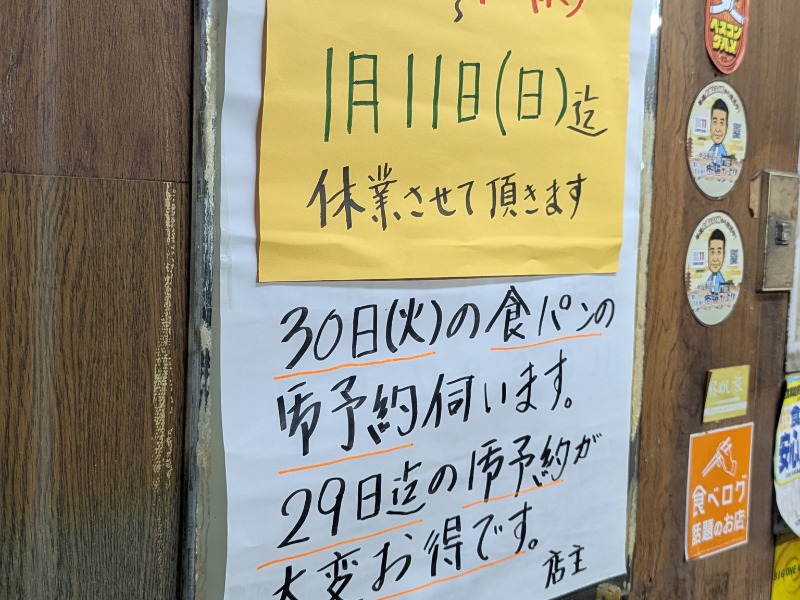 1月11日(日)迄
休業させて頂きます
30日(火)の食パンの
御予約伺います。
29日迄の御予約が
大変お得です。
店主
ベスコン
グルメ
食べログ
話題のお店